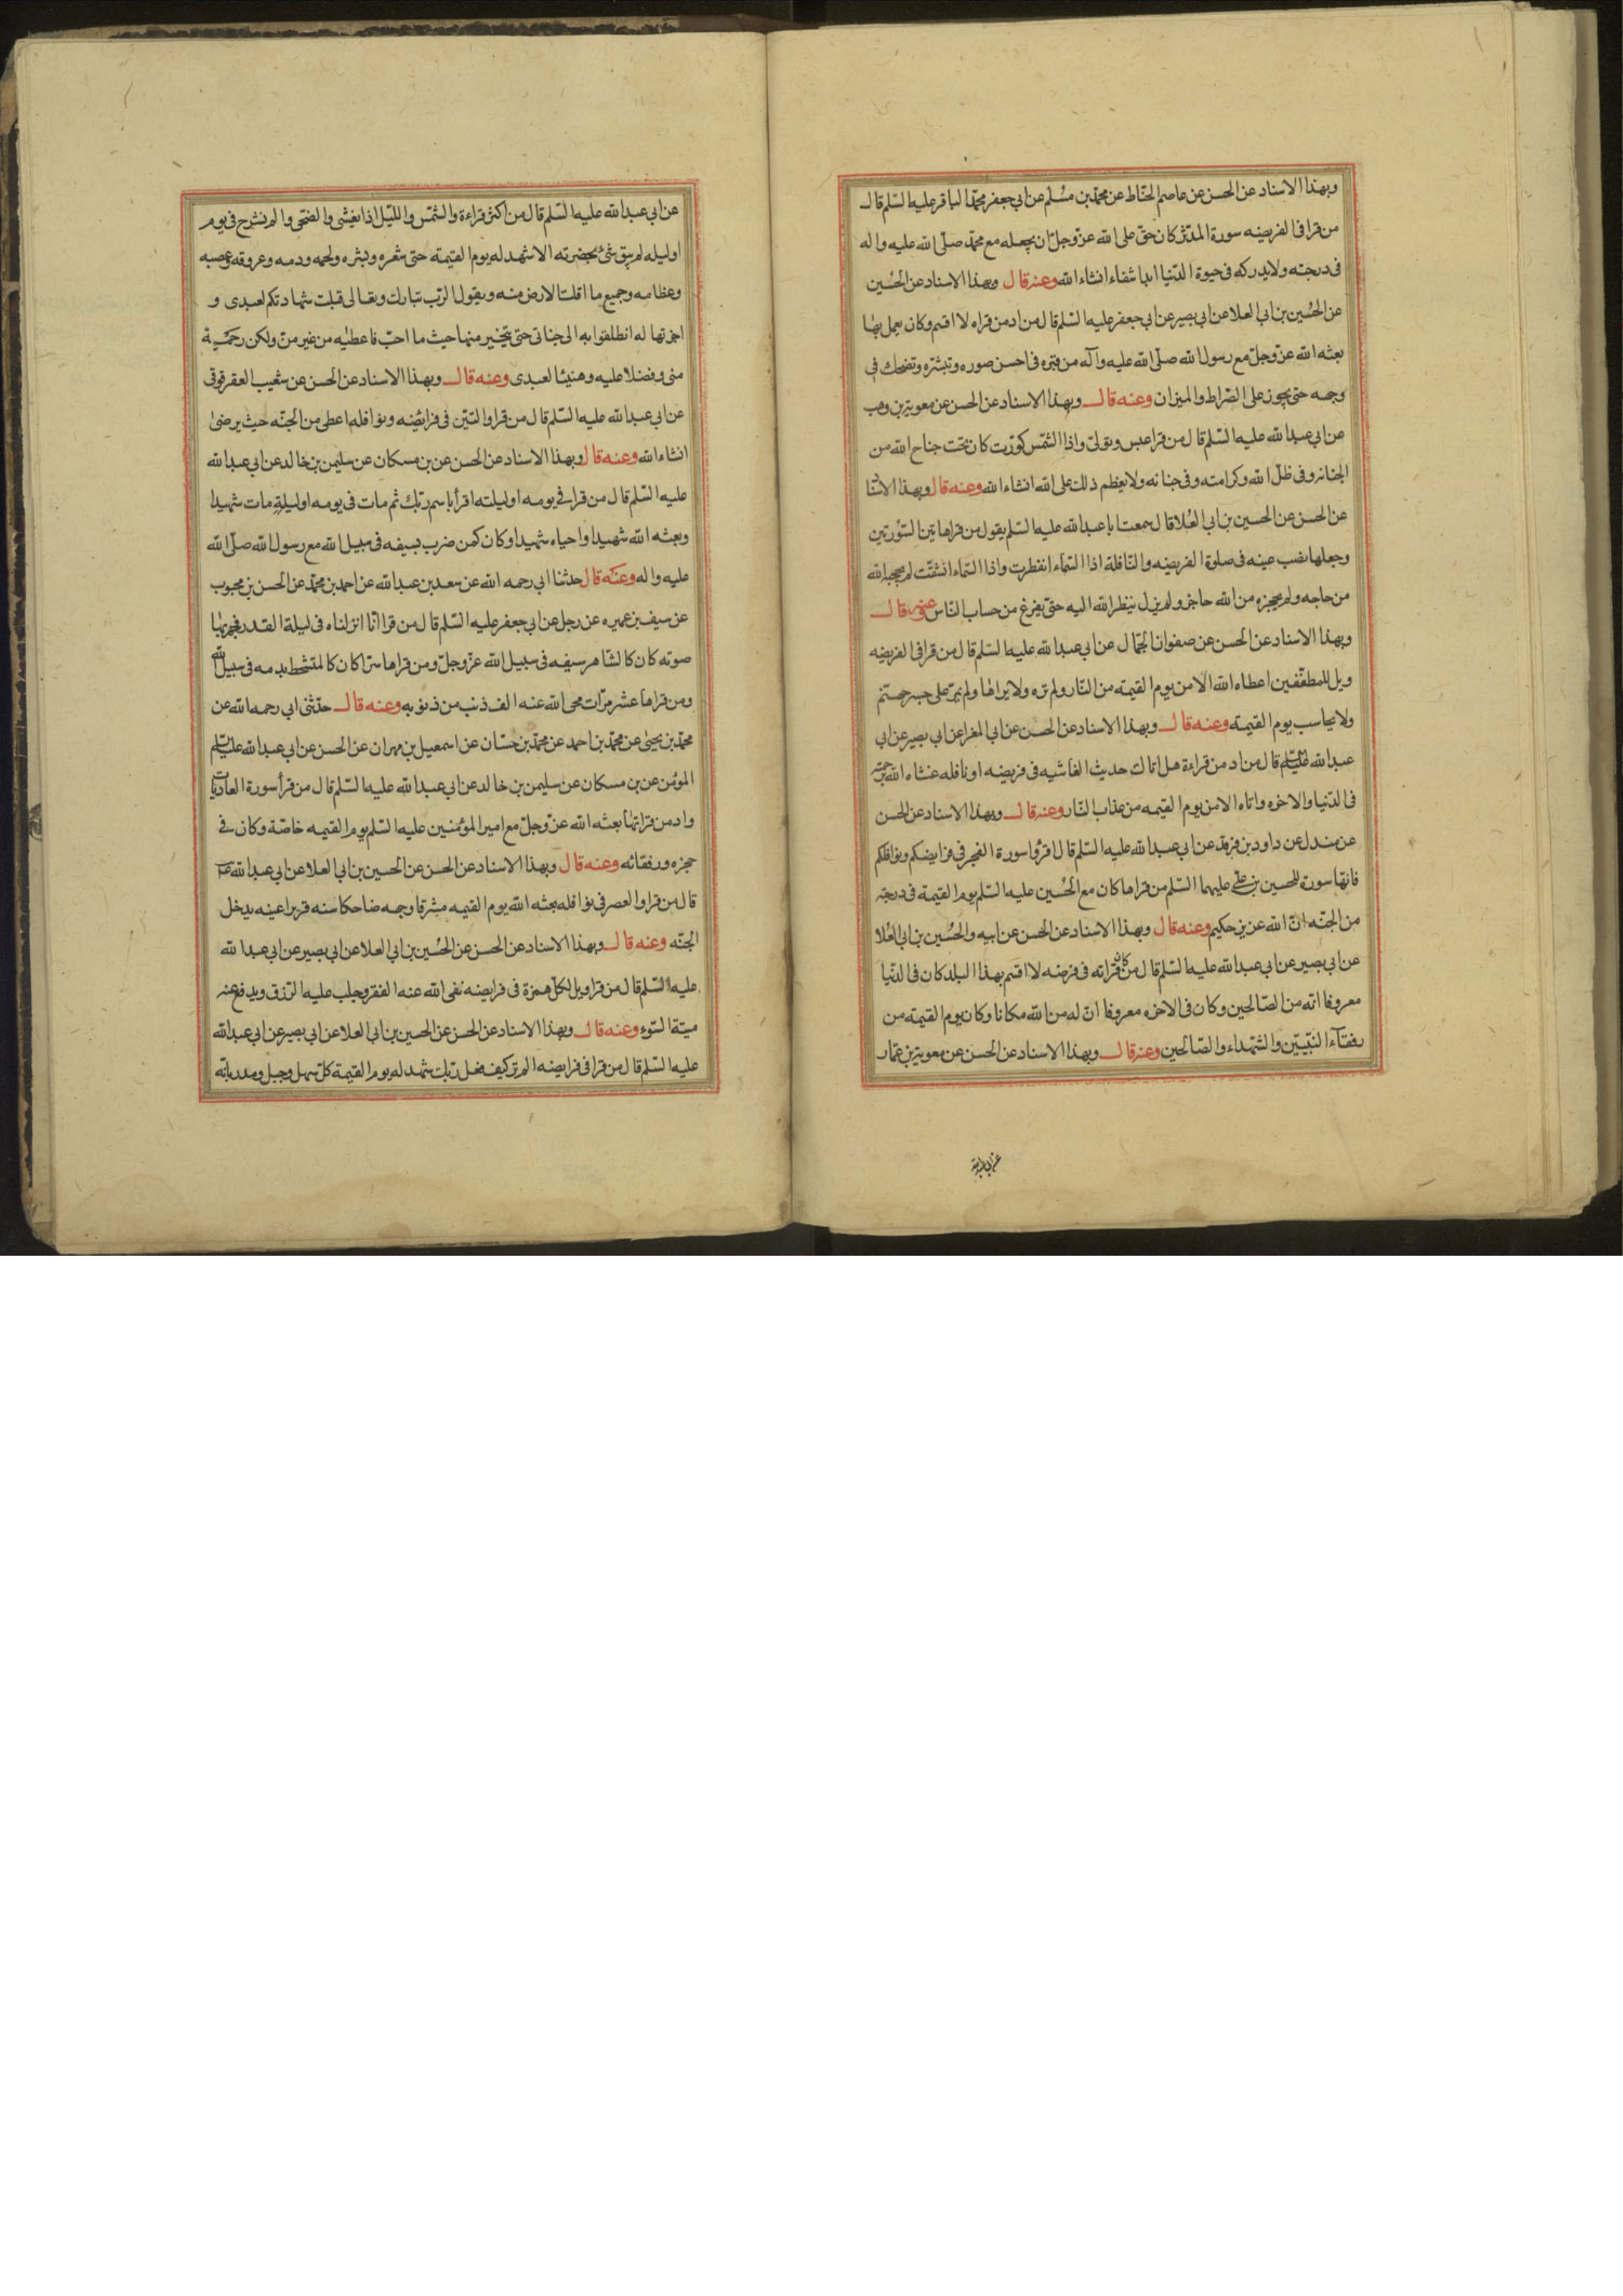 وبهذا الاسناد عن الحسن عن عاصم الحناط عن محمد بن مسلم عن ابي جعفر محمد الباقر عليه السلم قال
من قرا فى الفريضه سورة المدثر كان حق على الله عز وجل ان يجعله مع محمد صلى الله عليه واله
فى درجته ولا يدركه فى حيوة الدنيا ابدا شفاء انشاء الله وعنه قال وبهذا الاسناد عن الحسين
عن الحسين بن ابى العلا عن ابى بصير عن ابى جعفر عليه السلم قال من ادمن قراه لا اقسم وكان يعمل بها
بعثه الله عز وجل مع رسول الله صلى الله عليه وآله من قبره فى احسن صوره وتبشره وتضحك فى
وجهه حتى يجوز على الصراط والميزان وعنه قال وبهذا الاسناد عن الحسن عن معوية بن وهب
عن ابى عبد الله عليه السلم قال من قرا عبس وتولى واذا الشمس كورت كان تحت جناح الله من
الجنان وفى ظل الله وكرامته وفى جنانه ولا يعظم ذلك على الله انشاء الله وعنه قال وبهذا الاسناد
عن الحسن عن الحسين بن ابى العلا قال سمعت ابا عبد الله عليه السلم يقول من قرا هاتين السورتين
وجعلها نصب عينه فى صلوة الفريضه والنافلة اذا السماء انفطرت واذا السماء انشقت لم يحجبه الله
من حاجه ولم يحجزه من الله حاجز ولم يزل ينظر الله اليه حتى يفرغ من حساب الناس وعنه قال
وبهذا الاسناد عن الحسن عن صفوان الجمال عن ابى عبد الله عليه السلم قال من قرا فى الفريضه
ويل للمطففين اعطاه الله الامن يوم القيمة من النار ولم تره ولا يراها ولم يمر على جسر جهنم
ولا يحاسب يوم القيمة وعنه قال وبهذا الاسناد عن الحسن عن ابى المغرا عن ابى بصير عن ابى
عبد الله عليه السلم قال من ادمن قراءة هل اتاك حديث الغاشيه فى فريضه او نافله غشاه الله برحمته
فى الدنيا والاخره واتاه الامن يوم القيمه من عذاب النار وعنه قال وبهذا الاسناد عن الحسن
عن مندل عن داود بن فرقد عن ابى عبد الله عليه السلم قال اقرؤا سورة الفجر فى فرايضكم ونوافلكم
فانها سورة للحسين بن على عليهما السلم من قراها كان مع الحسين عليه السلم يوم القيمة فى درجته
من الجنه ان الله عزيز حكيم وعنه قال وبهذا الاسناد عن الحسن عن ابيه والحسين بن ابى العلا
عن ابى بصير عن ابى عبد الله عليه السلم قال من كان قراته فى فرضه لا اقسم بهذا البلد كان فى الدنيا
معروفا انه من الصالحين وكان فى الاخره معروفا ان له من الله مكانا وكان يوم القيمة من
رفقآء النبيين والشهداء والصالحين وعنه قال وبهذا الاسناد عن الحسن عن معوية بن عمار
عن ابى عبد الله
عن ابى عبد الله عليه السلم قال من اكثر قراءة والشمس والليل اذا يغشى والضحى والم نشرح فى يوم
او ليله لم يبق شئ بحضرته الا شهد له يوم القيمة حتى شعره وبشره ولحمه ودمه وعروقه وعصبه
وعظامه وجميع ما اقلت الارض منه ويقول الرب تبارك وتعالى قبلت شهادتكم لعبدى و
اجزتها له انطلقوا به الى جنانى حتى يتخير منها حيث ما احب فاعطيه من غير من ولكن رحمة
منى وفضلا عليه وهنيئا لعبدى وعنه قال وبهذا الاسناد عن الحسن عن شعيب العقرقوفى
عن ابى عبد الله عليه السلم قال من قرا والتين فى فرائضه ونوافله اعطى من الجنه حيث يرضى
انشاء الله وعنه قال وبهذا الاسناد عن الحسن عن بن مسكان عن سليمن بن خالد عن ابى عبد الله
عليه السلم قال من قرا فى يومه او ليلته اقرأ باسم ربك ثم مات فى يومه او ليلته مات شهيدا
وبعثه الله شهيدا واحياه شهيدا وكان كمن ضرب بسيفه فى سبيل الله مع رسول الله صلى الله
عليه واله وعنه قال حدثنا ابى رحمه الله عن سعد بن عبد الله عن احمد بن محمد عن الحسن بن محبوب
عن سيف بن عميره عن رجل عن ابى جعفر عليه السلم قال من قرا انا انزلناه فى ليلة القدر فجهر بها
صوته كان كالشاهر سيفه فى سبيل الله عز وجل ومن قراها سرا كان كالمتشحط بدمه فى سبيل الله
ومن قراها عشر مرات محى الله عنه الف ذنب من ذنوبه وعنه قال حدثنى ابى رحمه الله عن
محمد بن يحيى عن محمد بن احمد عن محمد بن حسان عن اسمعيل بن مهران عن الحسن عن ابى عبد الله عليه السلم
المؤمن عن بن مسكان عن سليمن بن خالد عن ابى عبد الله عليه السلم قال من قرأ سورة العاديات
وادمن قراتها بعثه الله عز وجل مع امير المؤمنين عليه السلم يوم القيمه خاصة وكان فى
حجزه ورفقائه وعنه قال وبهذا الاسناد عن الحسن عن الحسين بن ابى العلا عن ابى عبد الله ع
قال من قرا والعصر فى نوافله بعثه الله يوم القيمه مشرقا وجهه ضاحكا سنه قريرا عينه يدخل
الجنه وعنه قال وبهذا الاسناد عن الحسن عن الحسين بن ابى العلا عن ابى بصير عن ابى عبد الله
عليه السلم قال من قرا ويل لكل همزة فى فرايضه نفى الله عنه الفقر وجلب عليه الرزق ويدفع عنه
ميتة السوء وعنه قال وبهذا الاسناد عن الحسن عن الحسين بن ابى العلا عن ابى بصير عن ابى عبد الله
عليه السلم قال من قرا فى فرايضه الم تر كيف فعل ربك شهد له يوم القيمة كل سهل وجبل ومدر بانه